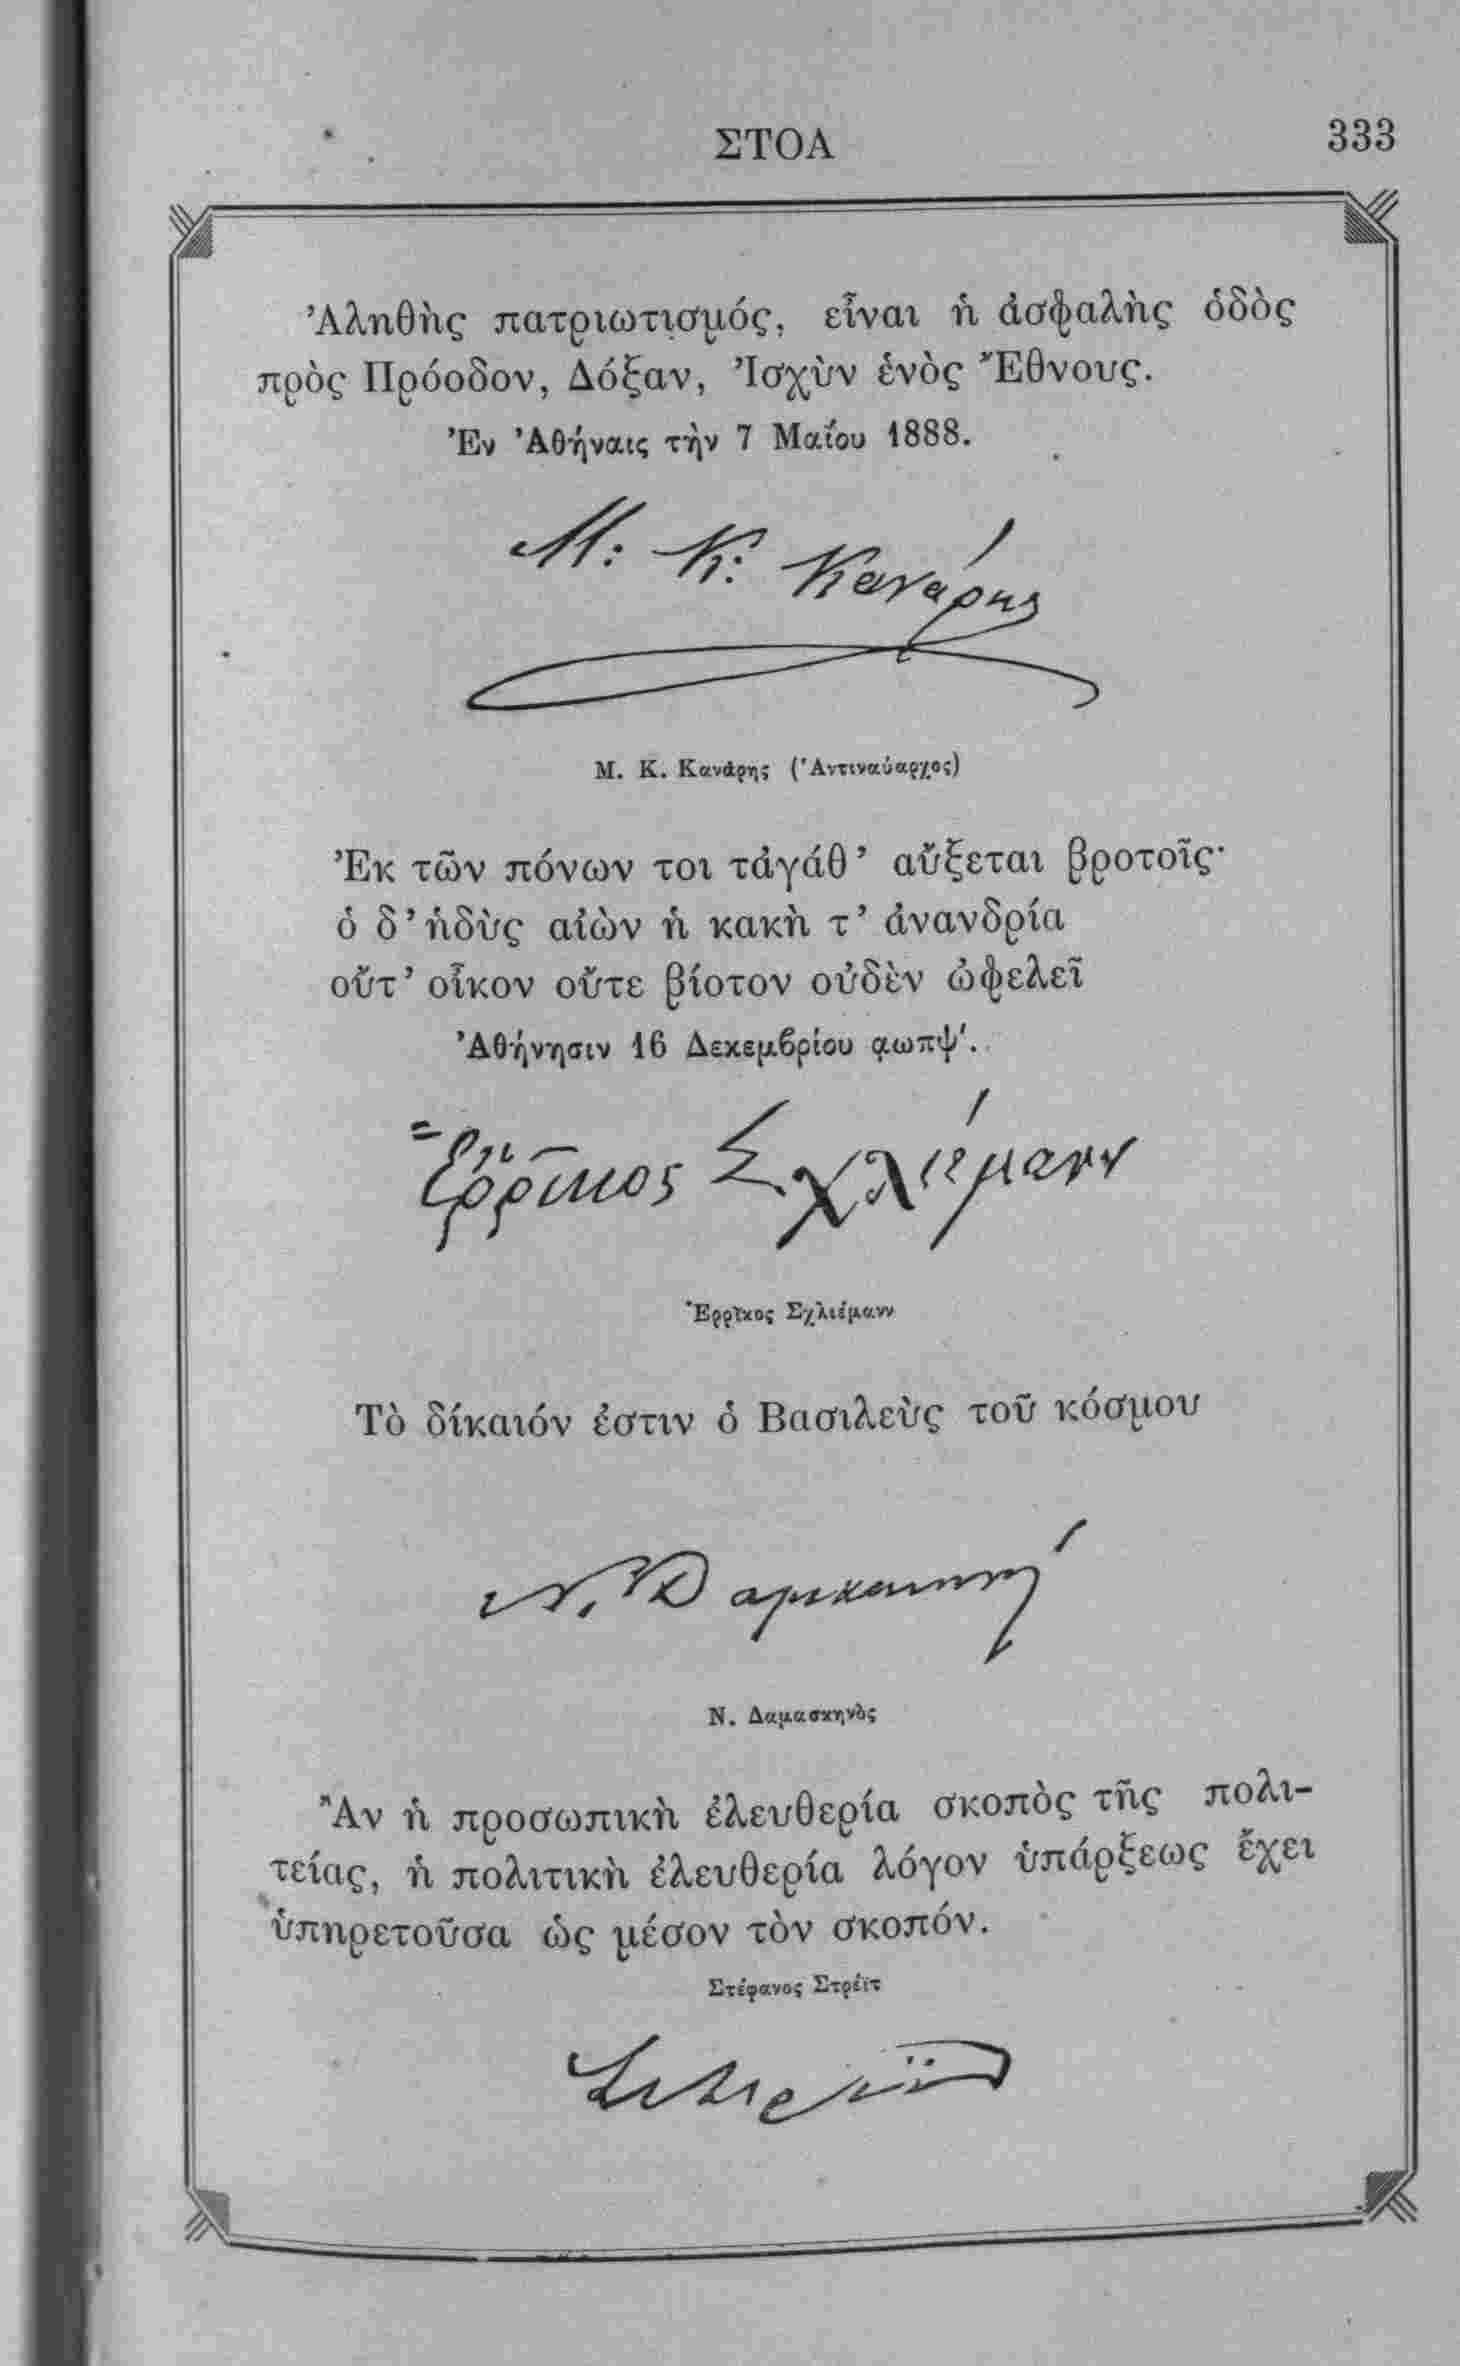 ΣΤΟΑ 333
Ἀληθὴς πατριωτισμός, εἶναι ἡ ἀσφαλὴς ὁδὸς
πρὸς Πρόοδον, Δόξαν, Ἰσχὺν ἑνὸς Ἔθνους.
Ἐν Ἀθήναις τὴν 7 Μαΐου 1888.
Μ: Κ: Κανάρης
Μ. Κ. Κανάρης (Ἀντιναύαρχος)
Ἐκ τῶν πόνων τοι τἀγάθ’ αὔξεται βροτοῖς·
ὁ δ’ ἡδὺς αἰὼν ἡ κακὴ τ’ ἀνανδρία
οὔτ’ οἶκον οὔτε βίοτον οὐδὲν ὠφελεῖ
Ἀθήνησιν 16 Δεκεμβρίου αωπψ'.
Ἐῤῥῖκος Σχλιέμανν
Ἐρρῖκος Σχλιέμανν
Τὸ δίκαιόν ἐστιν ὁ Βασιλεὺς τοῦ κόσμου
Ν. Δαμασκηνός
Ν. Δαμασκηνὸς
Ἂν ἡ προσωπικὴ ἐλευθερία σκοπὸς τῆς πολι-
τείας, ἡ πολιτικὴ ἐλευθερία λόγον ὑπάρξεως ἔχει
ὑπηρετοῦσα ὡς μέσον τὸν σκοπόν.
Στέφανος Στρέϊτ